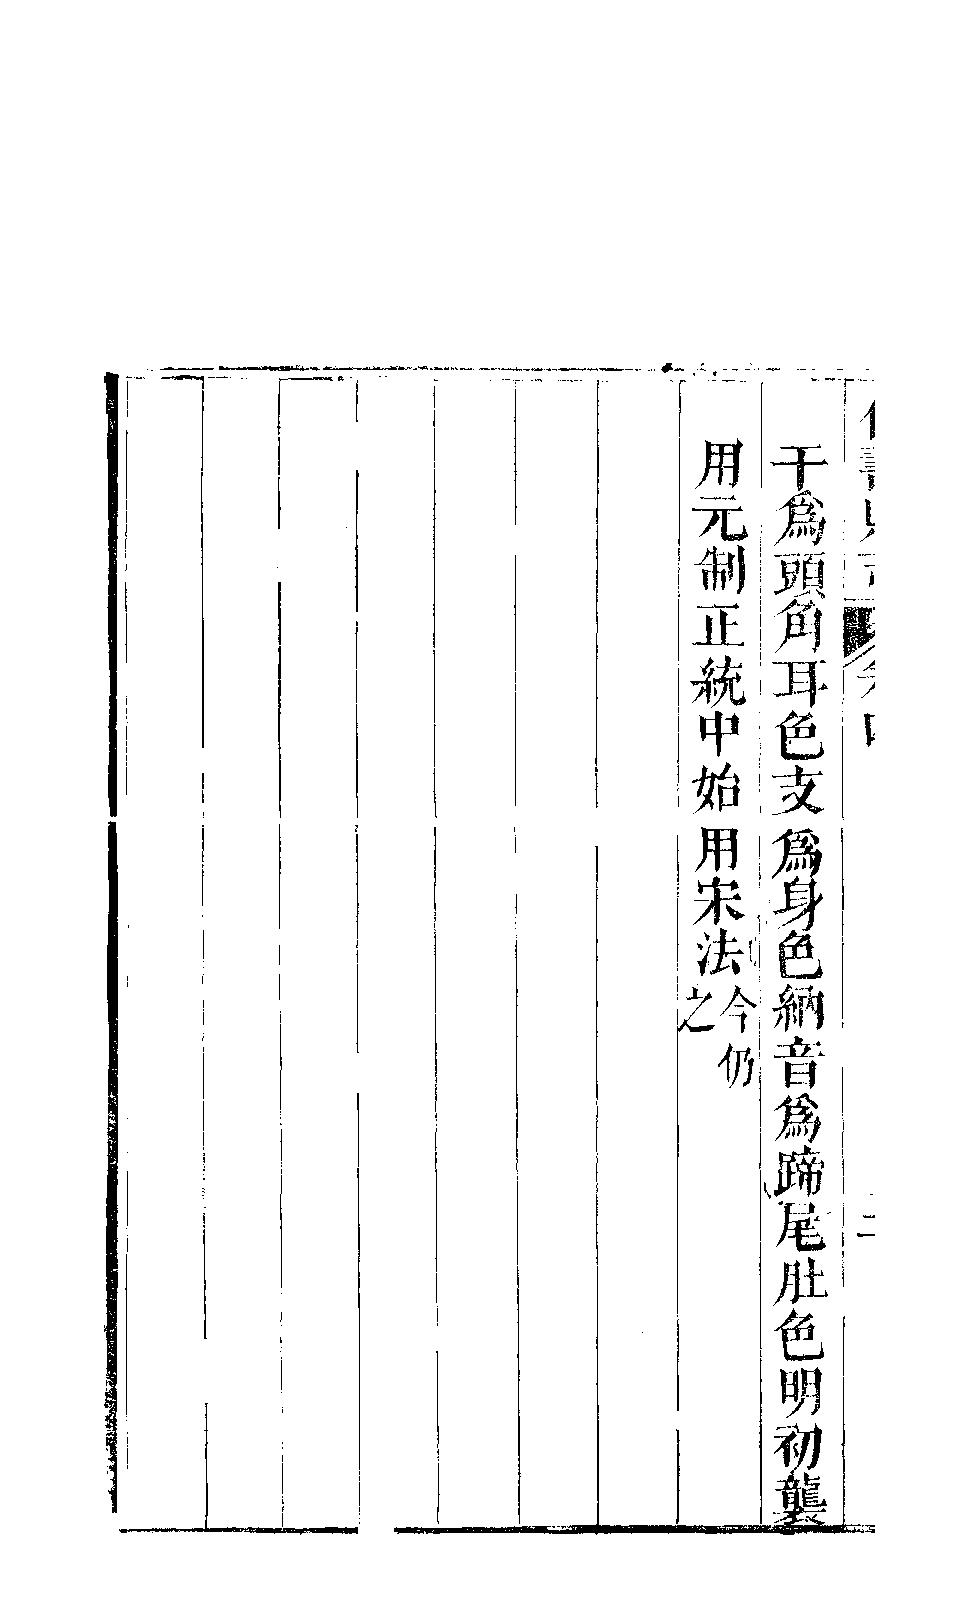 干爲頭角耳色支爲身色納音爲蹄尾肚色明初襲
用元制正統中始用宋法今仍之